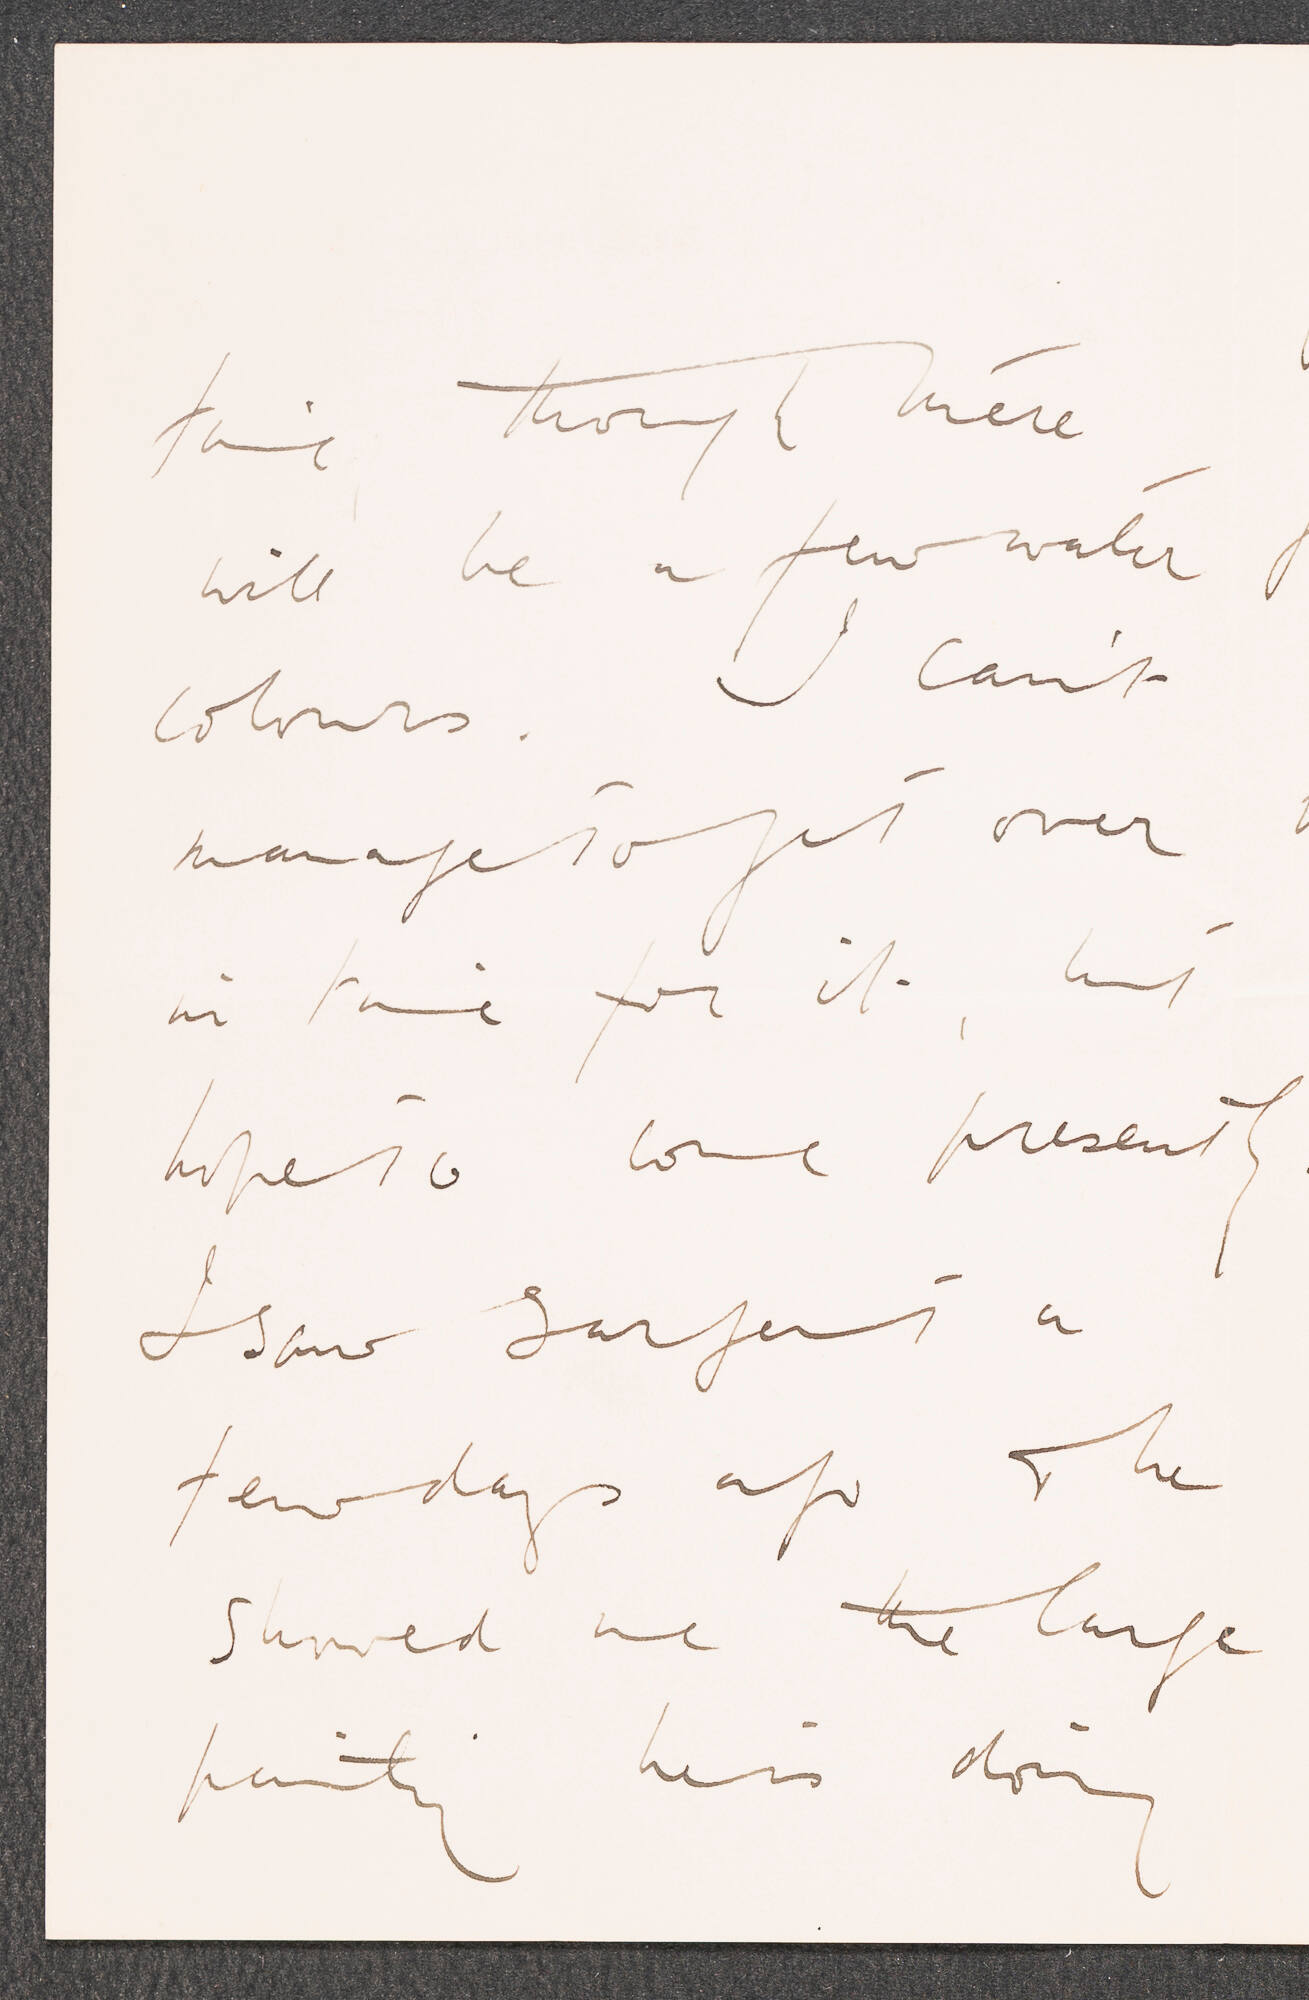 time, though there
will be a few water
colours. I can't
manage to get over
in time for it, but
hope to come presently.
I saw Sargent a
few days ago & he
showed me the large
painting he is doing